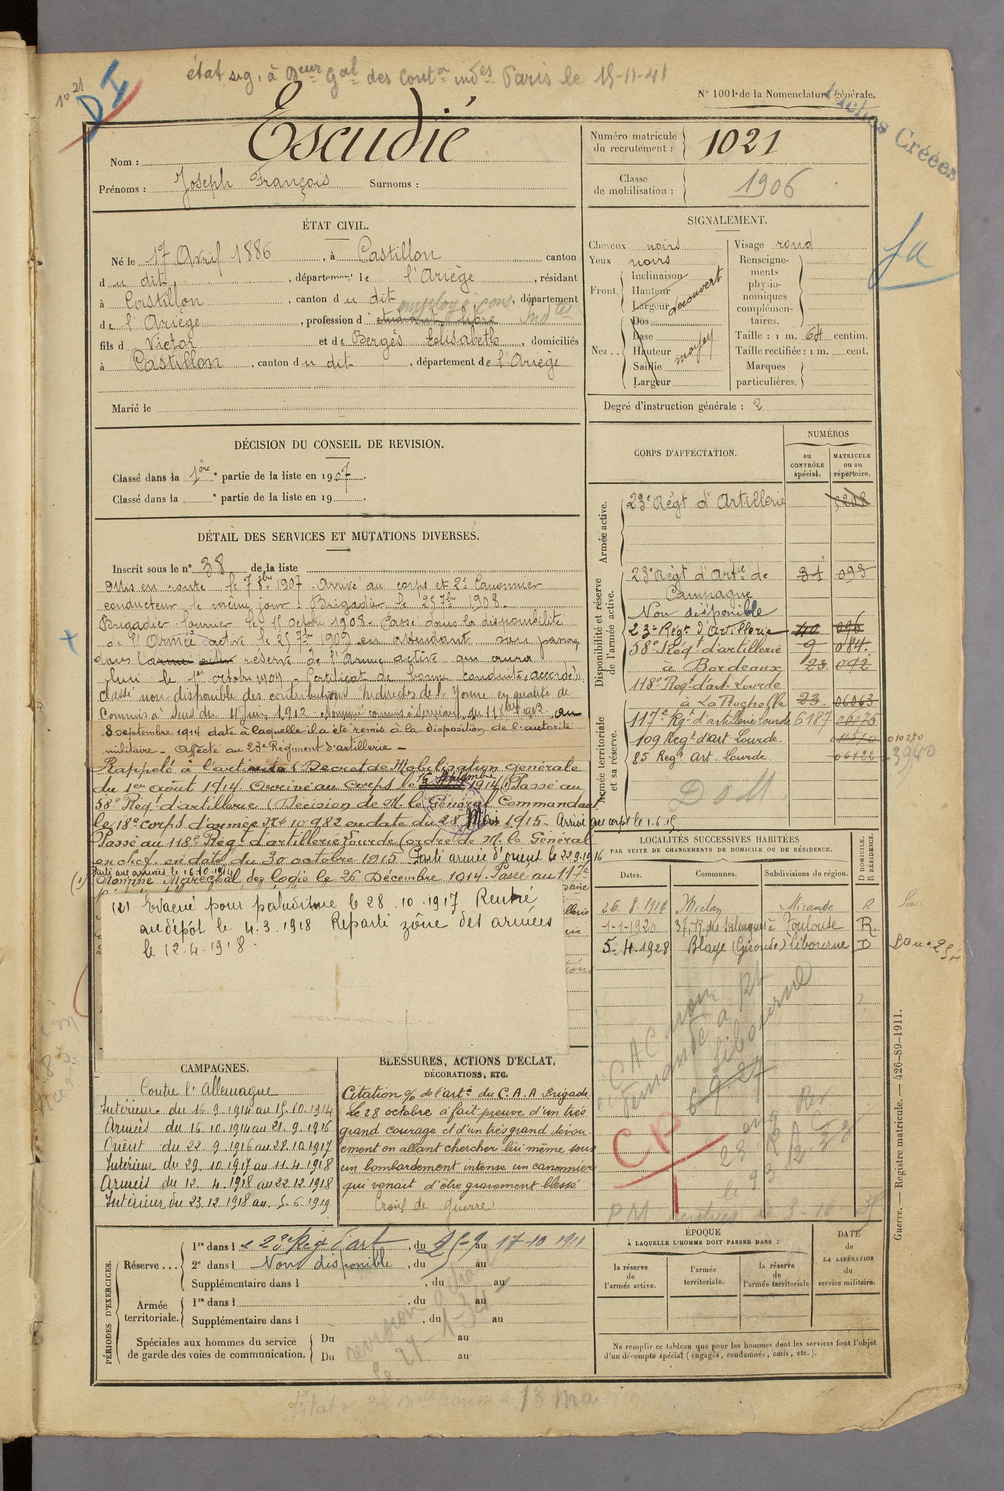 état sig. à Dr Gal des Contons indes Paris le 15-11-41
N° 1001 de la Nomenclature générale.
DI
Fiches Créées
Nom : Escudié
Prénoms : Joseph François Surnoms :
Numéro matricule du recrutement : 1021
Classe de mobilisation : 1906
ÉTAT CIVIL.
Né le 17 Avril 1886, à Castillon canton
du dit, département de l'Ariège, résidant
à Castillon, canton du dit, département
de l'Ariège, profession d'étudiant libre employé cons indtes
fils de Victor et de Bergès Elisabeth, domiciliés
à Castillon, canton du dit, département de l'Ariège
Marié le
SIGNALEMENT.
Cheveux noirs
Yeux noirs
Front. Inclinaison
Hauteur
Largeur
découvert
Nez... Dos
Base
Hauteur moyen
Saillie
Largeur
Visage rond
Renseignements physionomiques complémentaires.
Taille : 1 m. 64 centim.
Taille rectifiée : 1 m. cent.
Marques particulières.
Degré d'instruction générale : 2
DÉCISION DU CONSEIL DE REVISION.
Classé dans la 1ère partie de la liste en 1907.
Classé dans la e partie de la liste en 19
DÉTAIL DES SERVICES ET MUTATIONS DIVERSES.
Inscrit sous le n° 38 de la liste
Mis en route le 7 8bre 1907. Arrivé au corps et 2e Canonnier
conducteur le même jour. Brigadier le 25 7bre 1908.
Brigadier fourrier le 15 octobre 1908. Passé dans la disponibilité
de l'Armée active le 25 7bre 1909 en attendant son passage
dans la réserve de l'Armée active qui aura
lieu le 1er octobre 1909. Certificat de bonne conduite accordé.
Classé non disponible des contributions Indirectes de l'Yonne en qualité de
Commis à Sens du 4 Juin 1912
8 septembre 1914 date à laquelle il a été remis à la disposition de l'autorité
militaire - Affecté au 23e Régiment d'artillerie -
Rappelé à l'activité (Décret de Mobilisation générale
du 1er août 1914. Arrivé au corps le 16 Septembre 1914. Passé au
58e Rég. d'artillerie (Décision de M. le Général Commandant
le 18e corps d'armée n° 10982 en date du 28 Mai 1915. Arrivé au corps le 1.6.15
Passé au 118e Régt d'artillerie Lourde (ordre de M. le Général
en chef en date du 30 octobre 1915. Parti armée d'orient le 22.9.1916
Parti aux armées le 16.10.1914
(1) Nommé Maréchal des logis le 26 Décembre 1914. Passé au 117e
(2) Evacué pour paludisme le 28.10.1917 Rentré
au dépôt le 4.3.1918 Reparti zône des armées
le 12.4.1918.
CORPS D'AFFECTATION.
NUMÉROS
au CONTRÔLE spécial.
MATRICULE ou au répertoire.
Armée active.
23e Régt d'Artillerie
Disponibilité et réserve de l'armée active.
23e Régt d'Artie de Campagne 34 093
Non disponible
23e Régt d'Artillerie 40 096
58e Régt d'artillerie 9 084
à Bordeaux 23 092
118e Régt d'art Lourde
à La Rochelle 23 06063
Armée territoriale et sa réserve.
117e Rgt d'artillerie Lourde 6187
109 Régt d'art Lourde. 010270
85 Reg. Art. Lourde. 06722 3940
DoM
LOCALITÉS SUCCESSIVES HABITÉES
PAR SUITE DE CHANGEMENTS DE DOMICILE OU DE RÉSIDENCE.
Dates. Communes. Subdivisions de région. D DOMICILE. R RÉSIDENCE.
26.8.1919 Miélan Mirande R
1-1-1920 37, R. des Salenques à Toulouse R.
5.4.1928 Blaye (Gironde) Libourne D
CAMPAGNES.
Contre l'Allemagne
Intérieur du 16.9.1914 au 15.10.1914
Armées du 16.10.1914 au 21.9.1916
Orient du 22.9.1916 au 28.10.1917
Intérieur du 29.10.1917 au 11.4.1918
Armées du 12.4.1918 au 22.12.1918
Intérieur du 23.12.1918 au 5.6.1919
BLESSURES, ACTIONS D'ÉCLAT, DÉCORATIONS, ETC.
Citation % de l'artie du C.A.A Brigade
Le 28 octobre a fait preuve d'un très
grand courage et d'un très grand dévou-
ement en allant chercher lui même sous
un bombardement intense un canonnier
qui venait d'être gravement blessé
Croix de guerre
CP
Guerre. — Registre matricule. — 426-89-1911.
PÉRIODES D'EXERCICES.
Réserve... 1re dans le 23e Régt d'art, du au 17-10 1911
2e dans l Non disponible, du au
Supplémentaire dans l , du au
Armée territoriale. 1re dans l , du au
Supplémentaire dans l , du au
Spéciales aux hommes du service de garde des voies de communication. Du au
Du au
ÉPOQUE
À LAQUELLE L'HOMME DOIT PASSER DANS :
la réserve de l'armée active.
l'armée territoriale.
la réserve de l'armée territoriale
DATE de LA LIBÉRATION du service militaire.
Ne remplir ce tableau que pour les hommes dont les services font l'objet
d'un décompte spécial (engagés, condamnés, omis, etc.).